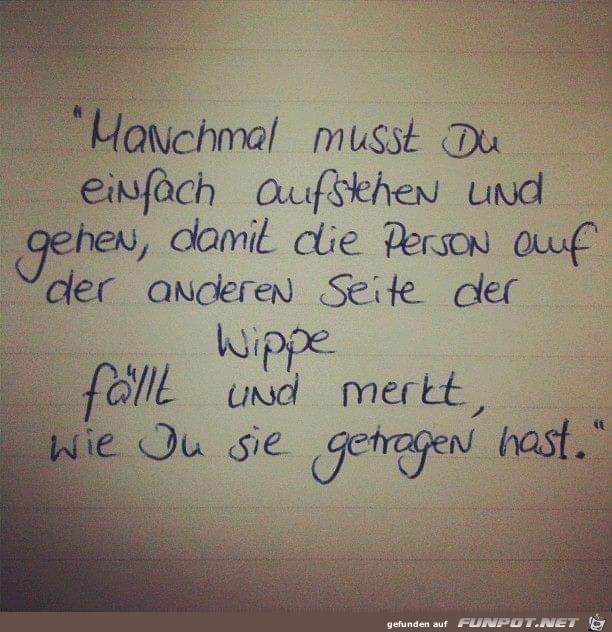 "Manchmal musst Du
einfach aufstehen und
gehen, damit die Person auf
der anderen Seite der
Wippe
fällt und merkt,
wie Du sie getragen hast."
gefunden auf FUNPOT.NET